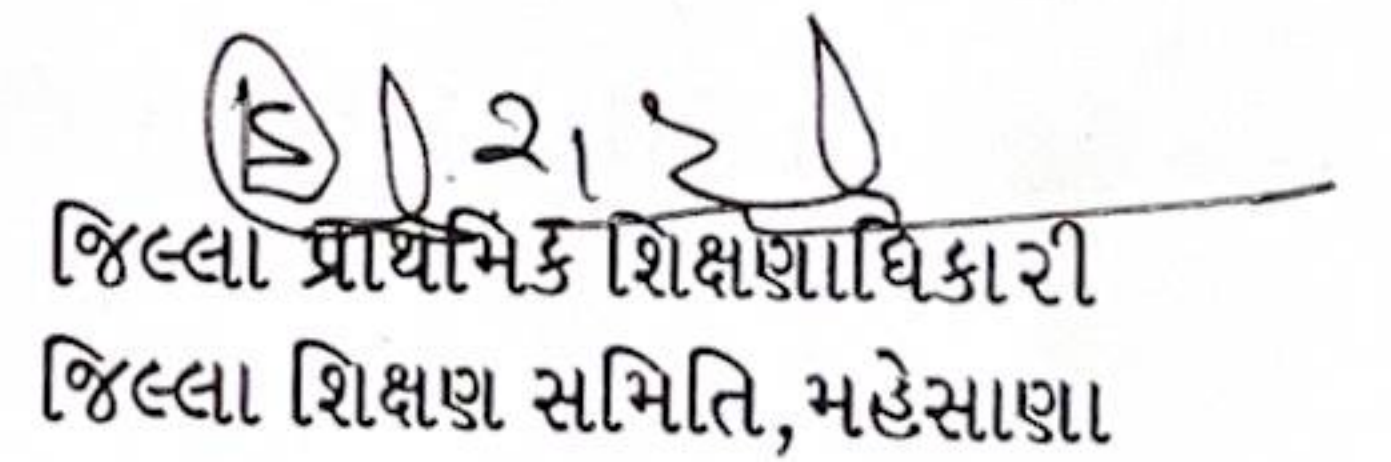 જિલ્લા પ્રાથમિક શિક્ષણાધિકારી
જિલ્લા શિક્ષણ સમિતિ,મહેસાણા